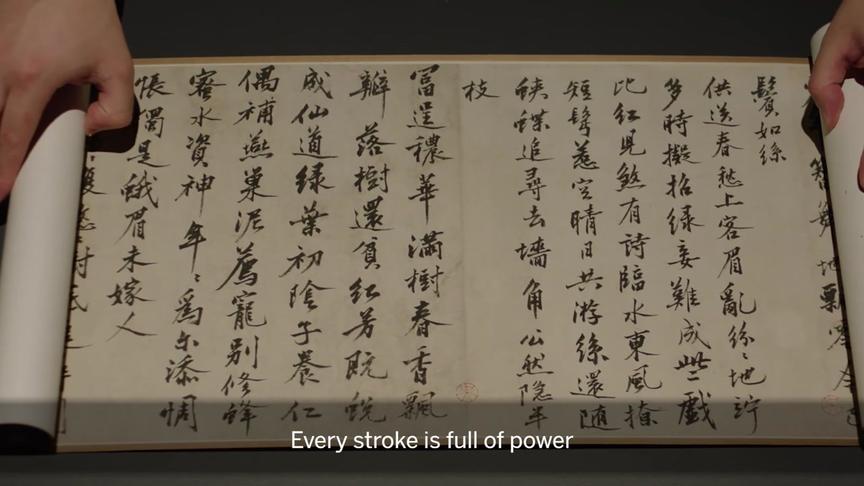 鬢如絲
供送春愁上客眉亂紛〻地竚
多時擬招綠妾難成些戲
比紅兒煞有詩臨水東風撩
短鬢惹空晴日共游絲還隨
蛺蝶追尋去墻角公然隱半
枝
富逞穠華滿樹春香飄
瓣落樹還貧紅芳既蛻
成仙道綠葉初陰子養仁
偶補燕巢泥薦寵別修蜂
蜜水資神年〻為尔添惆
悵獨是蛾眉未嫁人
Every stroke is full of power